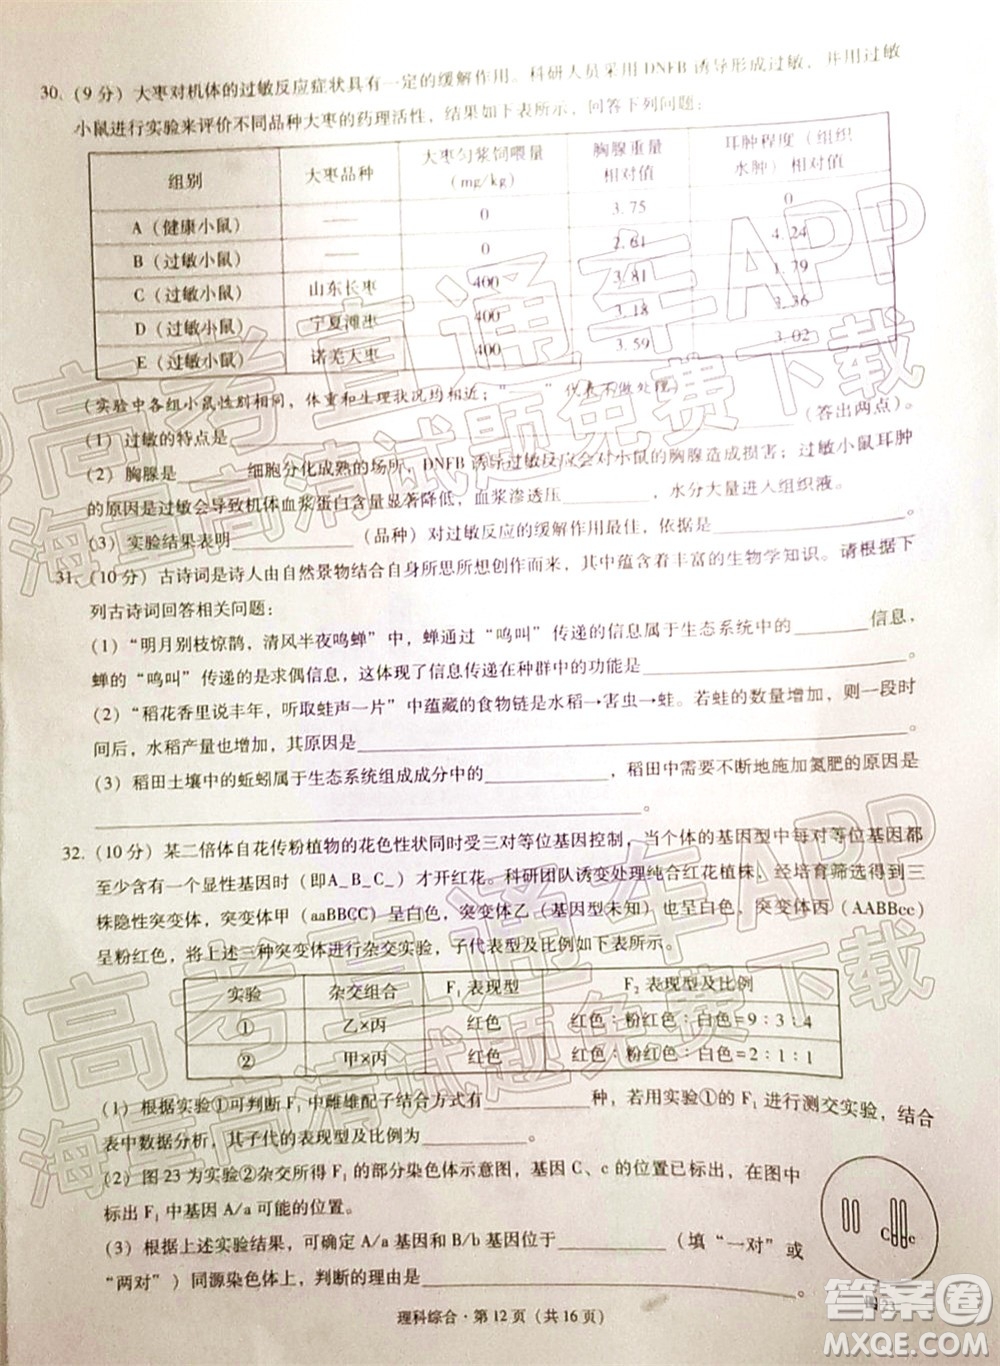 30. (9 分) 大枣对机体的过敏反应症状具有一定的缓解作用。科研人员采用 DNFB 诱导形成过敏，并用过敏
小鼠进行实验来评价不同品种大枣的药理活性，结果如下表所示，回答下列问题：
组别 大枣品种 大枣匀浆饲喂量 (mg/kg) 胸腺重量相对值 耳肿程度（组织水肿）相对值
A（健康小鼠） —— 0 3.75 0
B（过敏小鼠） —— 0 2.61 4.24
C（过敏小鼠） 山东长枣 400 3.81 1.79
D（过敏小鼠） 宁夏滩枣 400 3.18 3.36
E（过敏小鼠） 诺羌大枣 400 3.59 3.02
（实验中各组小鼠性别相同，体重和生理状况均相近；“——”代表不做处理）
（1）过敏的特点是____________（答出两点）。
（2）胸腺是______细胞分化成熟的场所，DNFB 诱导过敏反应会对小鼠的胸腺造成损害；过敏小鼠耳肿
的原因是过敏会导致机体血浆蛋白含量显著降低，血浆渗透压________，水分大量进入组织液。
（3）实验结果表明__________（品种）对过敏反应的缓解作用最佳，依据是____________。
31. (10 分) 古诗词是诗人由自然景物结合自身所思所想创作而来，其中蕴含着丰富的生物学知识。请根据下
列古诗词回答相关问题：
（1）“明月别枝惊鹊，清风半夜鸣蝉”中，蝉通过“鸣叫”传递的信息属于生态系统中的________信息，
蝉的“鸣叫”传递的是求偶信息，这体现了信息传递在种群中的功能是____________。
（2）“稻花香里说丰年，听取蛙声一片”中蕴藏的食物链是水稻→害虫→蛙。若蛙的数量增加，则一段时
间后，水稻产量也增加，其原因是____________。
（3）稻田土壤中的蚯蚓属于生态系统组成成分中的__________，稻田中需要不断地施加氮肥的原因是
____________。
32. (10 分) 某二倍体自花传粉植物的花色性状同时受三对等位基因控制，当个体的基因型中每对等位基因都
至少含有一个显性基因时（即A_B_C_）才开红花。科研团队诱变处理纯合红花植株，经培育筛选得到三
株隐性突变体，突变体甲（aaBBCC）呈白色，突变体乙（基因型未知）也呈白色，突变体丙（AABBcc）
呈粉红色，将上述三种突变体进行杂交实验，子代表型及比例如下表所示。
实验 杂交组合 F₁ 表现型 F₂ 表现型及比例
① 乙×丙 红色 红色：粉红色：白色＝9：3：4
② 甲×丙 红色 红色：粉红色：白色＝2：1：1
（1）根据实验①可判断 F₁ 中雌雄配子结合方式有__________种，若用实验①的 F₁ 进行测交实验，结合
表中数据分析，其子代的表现型及比例为____________。
（2）图 23 为实验②杂交所得 F₁ 的部分染色体示意图，基因 C、c 的位置已标出，请在图中
标出 F₁ 中基因 A/a 可能的位置。
C c
（3）根据上述实验结果，可确定 A/a 基因和 B/b 基因位于__________（填“一对”或
“两对”）同源染色体上，判断的理由是____________。
图 23
理科综合·第 12 页（共 16 页）
@高考直通车APP
海量高清试题免费下载
@高考直通车APP
海量高清试题免费下载
答案圈
MXQE.COM